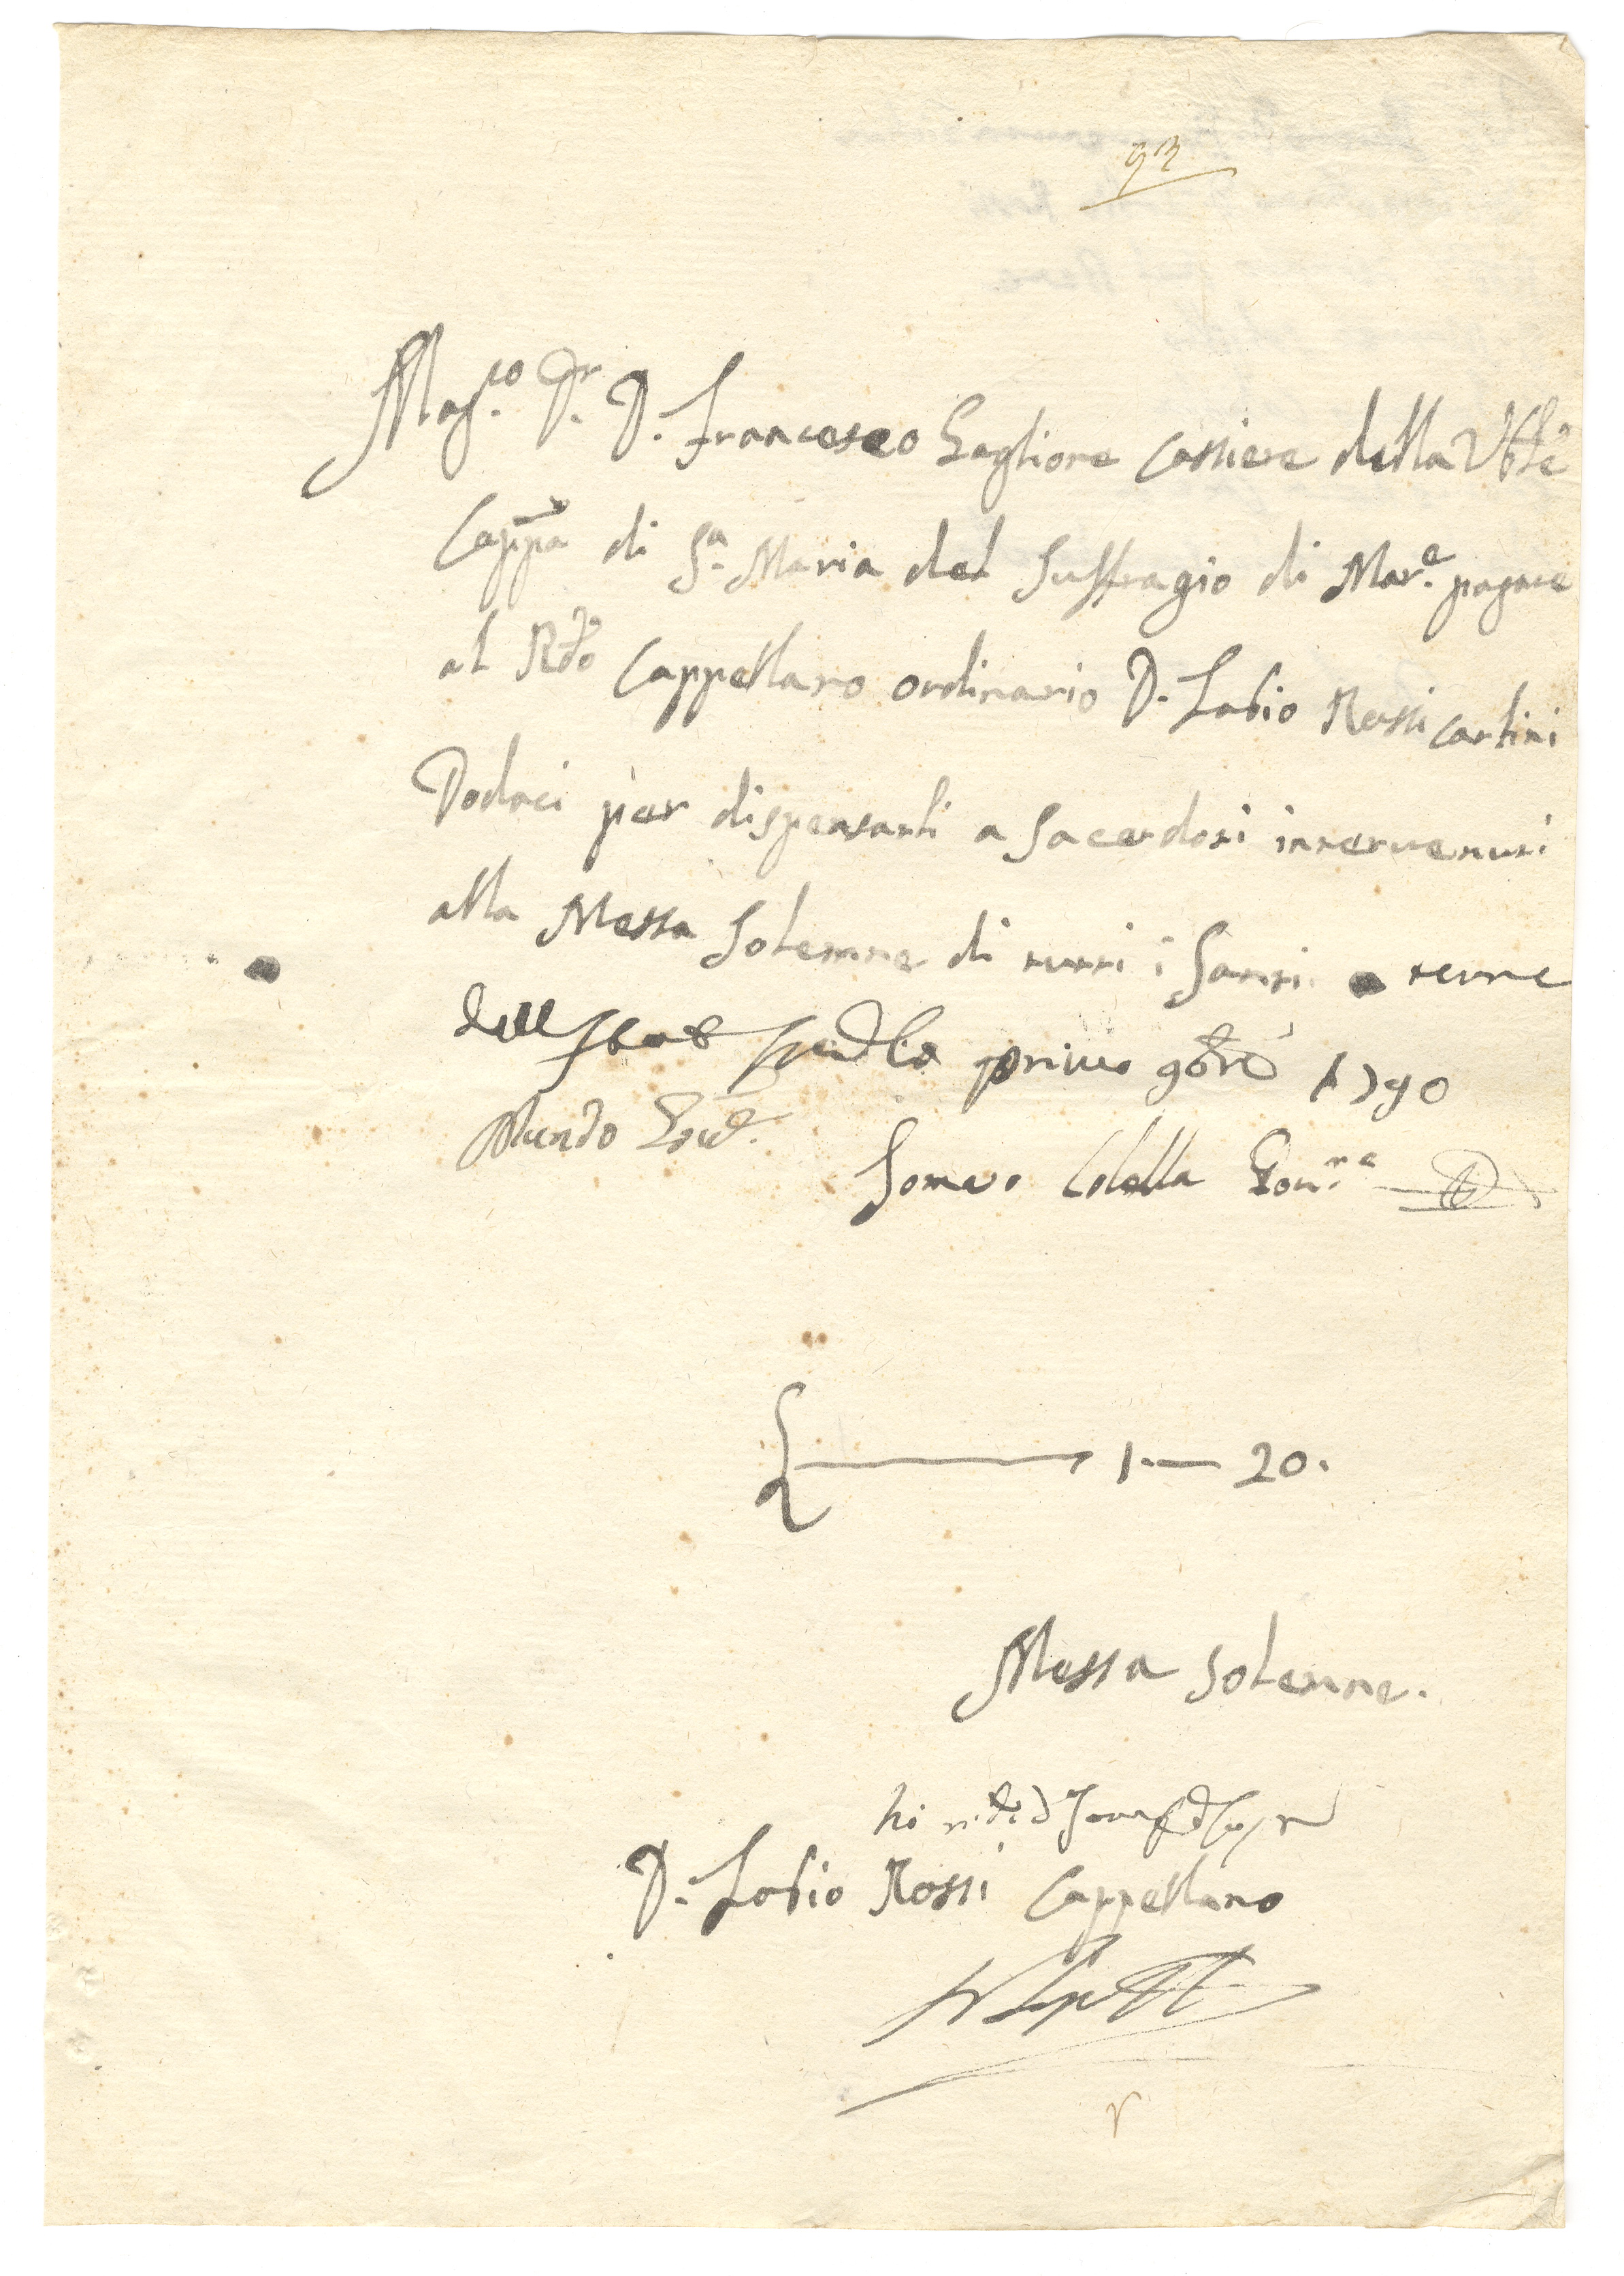 93
Mag.co D.r D. Francesco Gaglione Cassiere della Vble
Cappa di S.a Maria del Suffragio di Mar.e pagate
al Rdo Cappellano ordinario D. Fabio Rossi Carlini
Dodeci per dispensarli a Sacerdoti intervenuti
alla Messa Solenne di tutti i Santi. a tenore
dell primo 9bre 1790
Mundo
Colella Gov.re
1.— 20.
Messa Solenne.
D. Fabio Rossi Cappellano